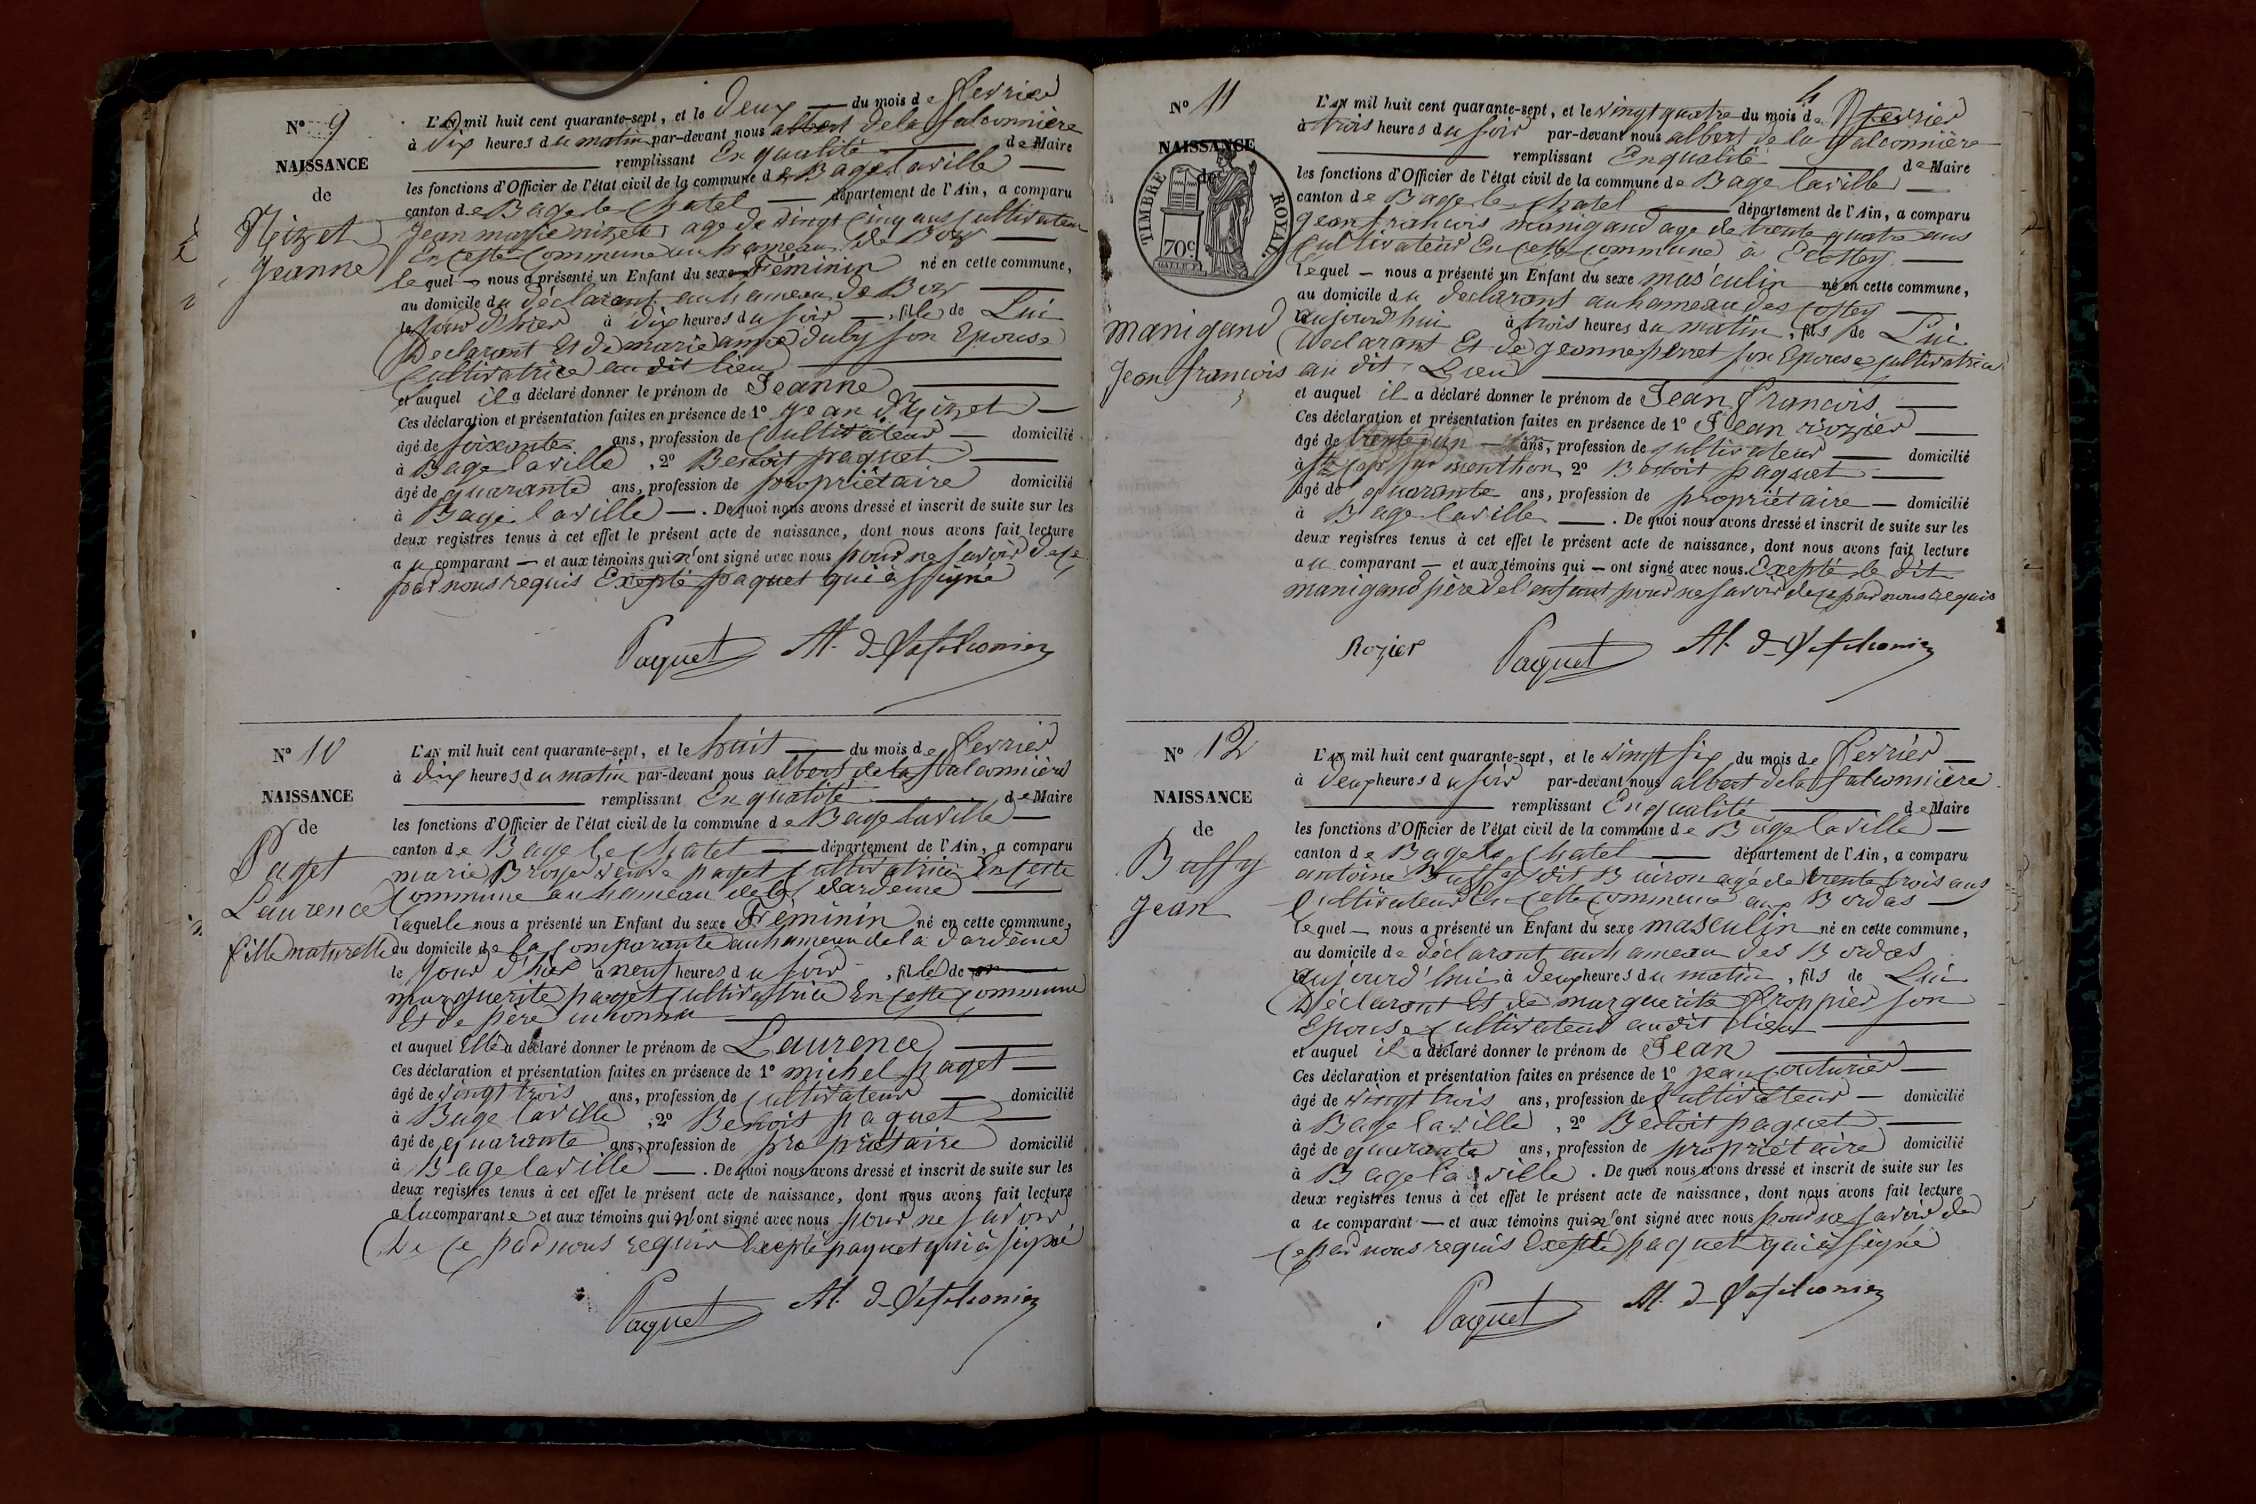 N° 9
NAISSANCE
de
Nizet
Jeanne
L'AN mil huit cent quarante-sept, et le deux du mois de fevrier
à dix heures du matin par-devant nous albert de la falconnière
remplissant En qualité de Maire
les fonctions d'Officier de l'état civil de la commune de Bage laville
canton de Bage le Chatel département de l'Ain, a comparu
Jean marie nizet agé de vingt Cinq ans cultivateur
En cette Commune au hameau de
lequel nous a présenté un Enfant du sexe Féminin né en cette commune,
au domicile du déclarant au hameau de
le jour d'hier à dix heures du soir, fille de Lui
Déclarant Et de marie anne duby son Epouse
Cultivatrice au dit lieu
et auquel il a déclaré donner le prénom de Jeanne
Ces déclaration et présentation faites en présence de 1° jean Nizet
âgé de soixante ans, profession de Cultivateur domicilié
à Bage laville, 2° Benoit paquet
âgé de quarante ans, profession de propriétaire domicilié
à Bage laville. De quoi nous avons dressé et inscrit de suite sur les
deux registres tenus à cet effet le présent acte de naissance, dont nous avons fait lecture
au comparant et aux témoins qui n'ont signé avec nous pour ne savoir de ce
par nous requis Excepté paquet qui à signé
Paquet
N° 10
NAISSANCE
de
Paget
Laurence
fille naturelle
L'AN mil huit cent quarante-sept, et le huit du mois de fevrier
à dix heures du matin par-devant nous albert de la falconnière
remplissant En qualité de Maire
les fonctions d'Officier de l'état civil de la commune de Bage laville
canton de Bage le Chatel département de l'Ain, a comparu
marie Broyer veuve paget Cultivatrice En cette
Commune au hameau de la
laquelle nous a présenté un Enfant du sexe Féminin né en cette commune,
au domicile de la Comparante au hameau de la
le jour d'hier à neuf heures du soir, fille de
marguerite paget cultivatrice En cette Commune
Et de père inconnu
et auquel Elle a déclaré donner le prénom de Laurence
Ces déclaration et présentation faites en présence de 1° michel paget
âgé de vingt trois ans, profession de Cultivateur domicilié
à Bage laville, 2° Benoit paquet
âgé de quarante ans, profession de propriétaire domicilié
à Bage laville. De quoi nous avons dressé et inscrit de suite sur les
deux registres tenus à cet effet le présent acte de naissance, dont nous avons fait lecture
a la comparante et aux témoins qui n'ont signé avec nous pour ne savoir
de ce par nous requis Excepté paquet qui à signé
Paquet
N° 11
NAISSANCE
de
TIMBRE ROYAL
70c.
manigand
Jean francois
L'AN mil huit cent quarante-sept, et le vingt quatre du mois de fevrier
à trois heures du soir par-devant nous albert de la falconnière
remplissant En qualité de Maire
les fonctions d'Officier de l'état civil de la commune de Bage laville
canton de Bage le Chatel département de l'Ain, a comparu
jean francois manigand age de trente quatre ans
Cultivateur En cette Commune
lequel nous a présenté un Enfant du sexe masculin né en cette commune,
au domicile du declarant au hameau des
aujourd'hui à trois heures du matin, fils de Lui
Déclarant Et de jeanne perret son Epouse cultivatrice
au dit Lieu
et auquel il a déclaré donner le prénom de Jean francois
Ces déclaration et présentation faites en présence de 1° Jean rozier
âgé de trente un ans, profession de cultivateur domicilié
à menthon 2° Benoit paquet
âgé de quarante ans, profession de propriétaire domicilié
à Bage laville. De quoi nous avons dressé et inscrit de suite sur les
deux registres tenus à cet effet le présent acte de naissance, dont nous avons fait lecture
au comparant et aux témoins qui ont signé avec nous. Excepté le dit
manigand père de l'enfant pour ne savoir de ce par nous requis
Rozier Paquet
N° 12
NAISSANCE
de
Buffy
Jean
L'AN mil huit cent quarante-sept, et le vingt six du mois de fevrier
à deux heures du soir par-devant nous albert de la falconnière
remplissant En qualité de Maire
les fonctions d'Officier de l'état civil de la commune de Bage laville
canton de Bage le Chatel département de l'Ain, a comparu
antoine Buffy dit Buiron agé de trente trois ans
Cultivateur En cette Commune aux Bordas
lequel nous a présenté un Enfant du sexe masculin né en cette commune,
au domicile de déclarant au hameau des Bordas
aujourd'hui à deux heures du matin, fils de Lui
Déclarant Et de marguerite froppier son
Epouse Cultivateur au dit lieu
et auquel il a déclaré donner le prénom de Jean
Ces déclaration et présentation faites en présence de 1° jean Couturier
âgé de vingt trois ans, profession de Cultivateur domicilié
à Bage laville, 2° Benoit paquet
âgé de quarante ans, profession de propriétaire domicilié
à Bage la ville. De quoi nous avons dressé et inscrit de suite sur les
deux registres tenus à cet effet le présent acte de naissance, dont nous avons fait lecture
au comparant et aux témoins qui n'ont signé avec nous pour ne savoir de
ce par nous requis Excepté paquet qui à signé
Paquet